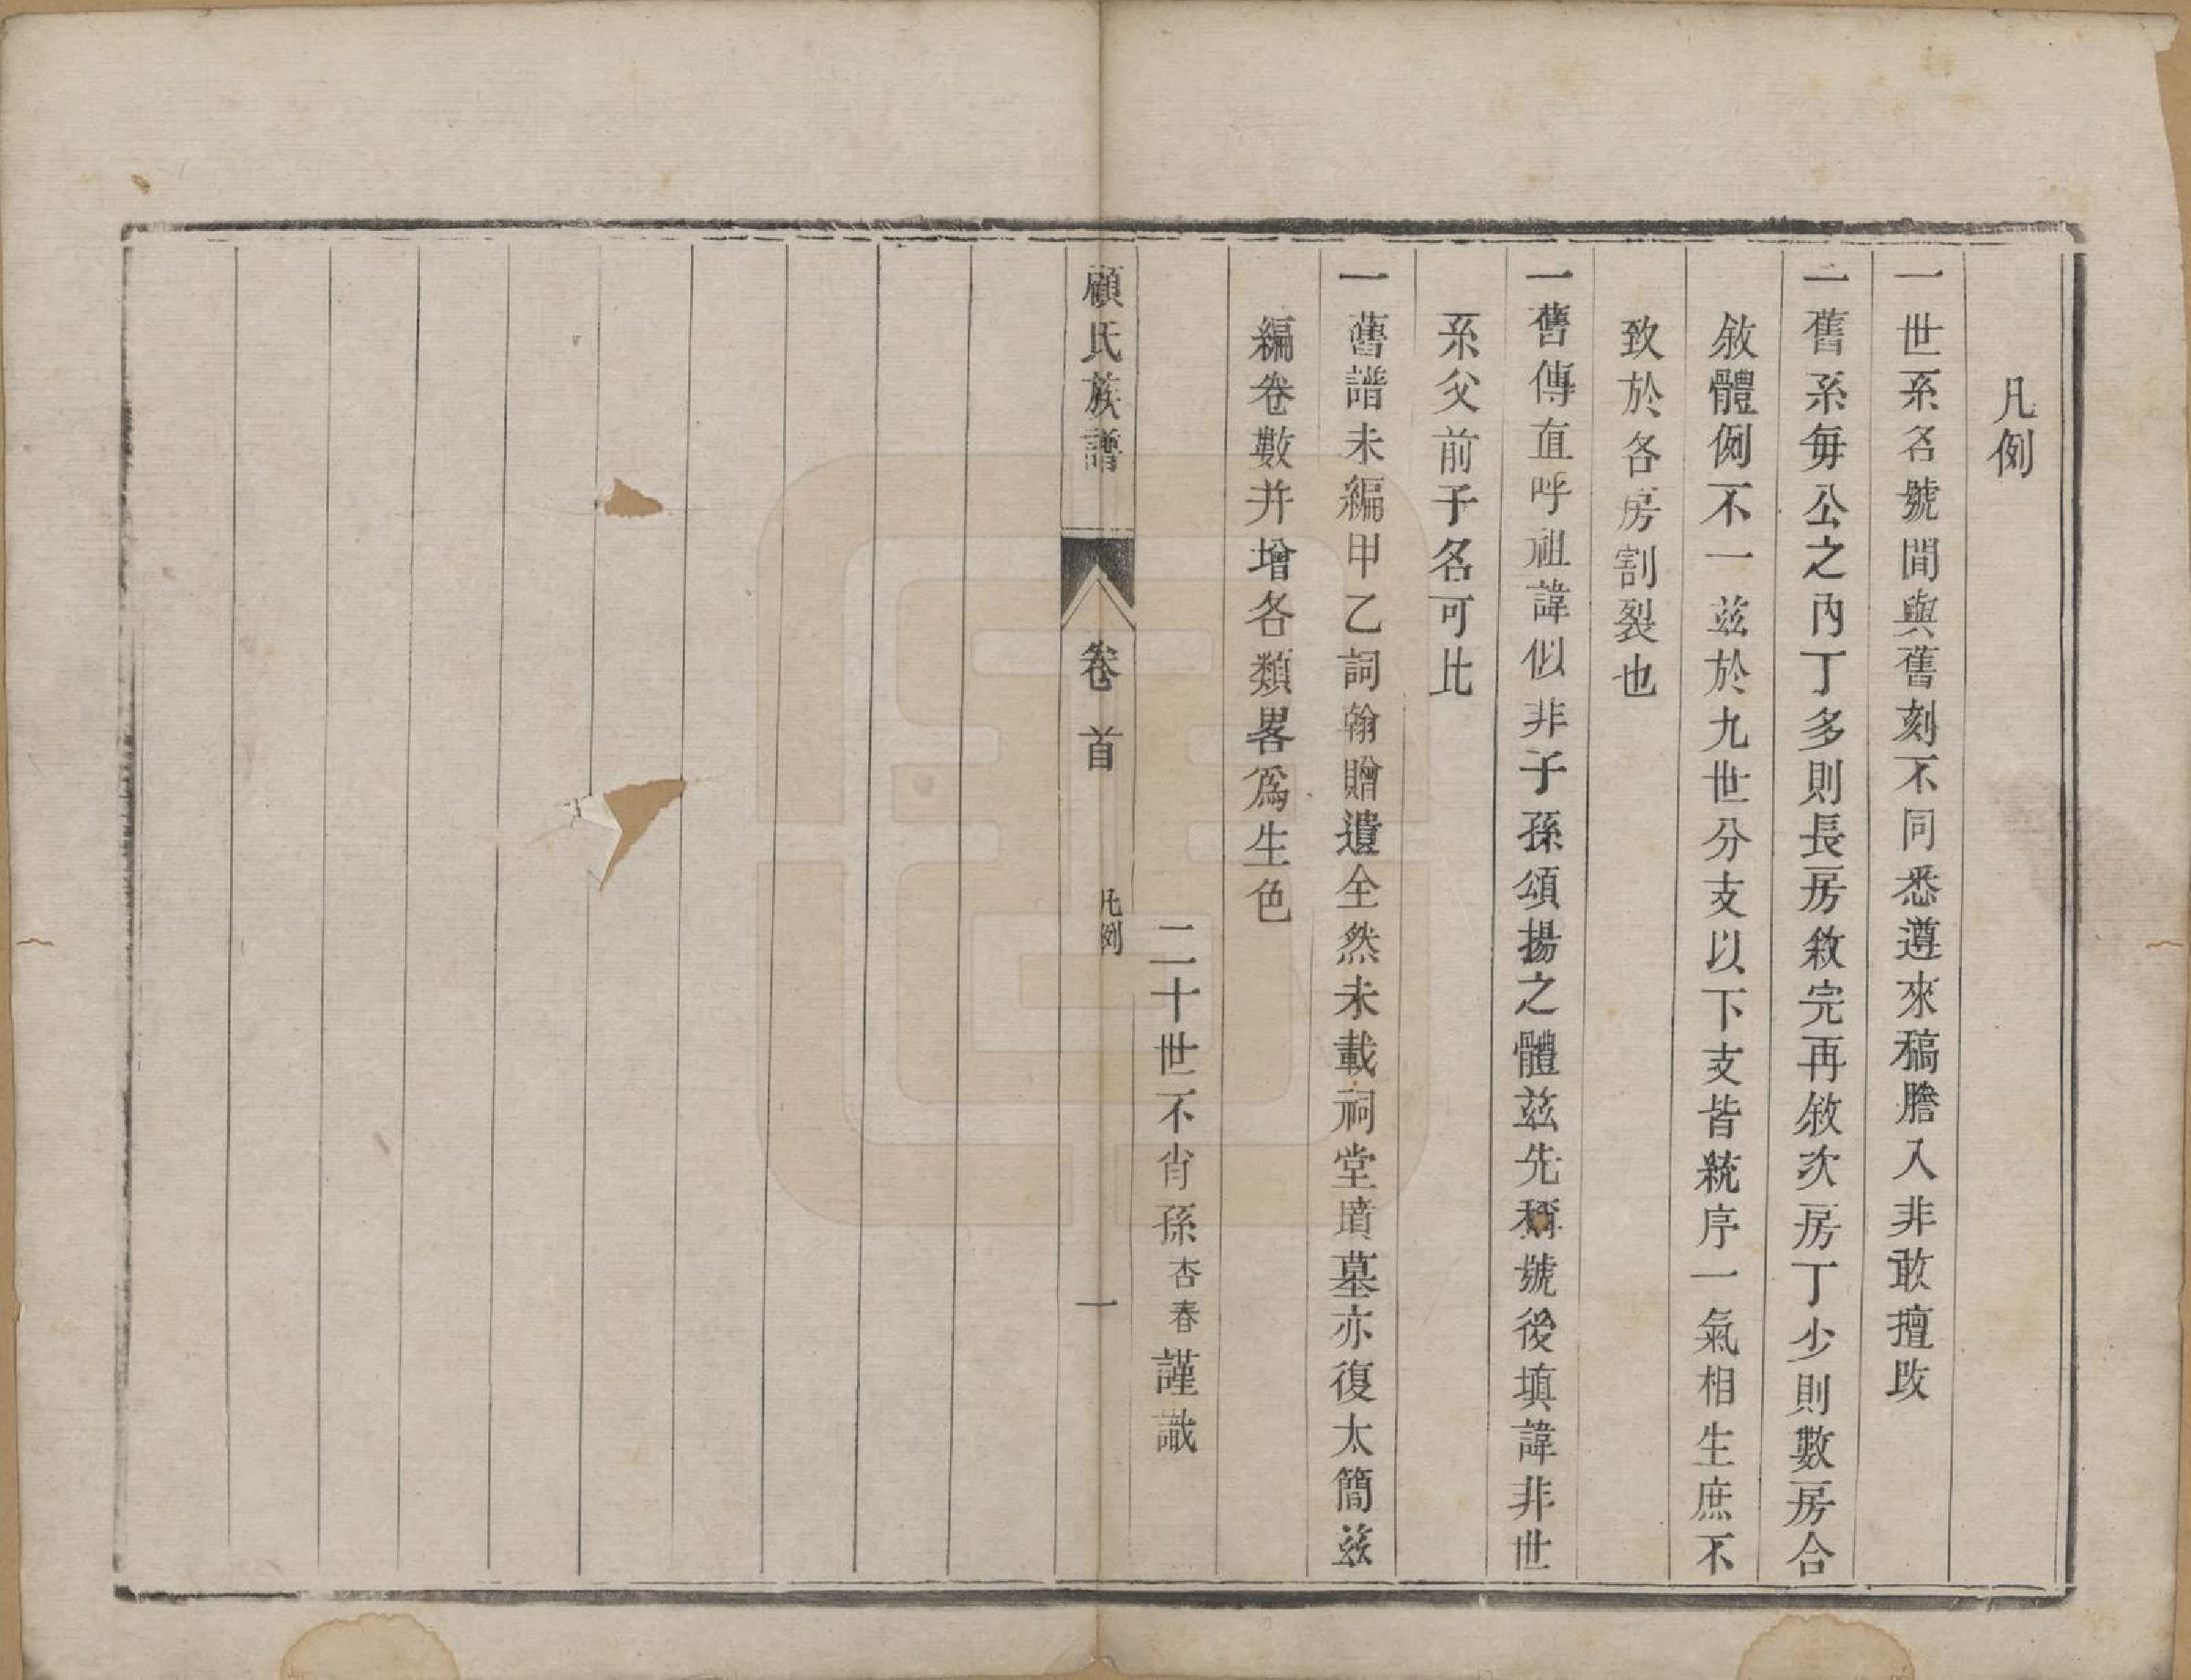 凡例
一世系名號間與舊刻不同悉遵來稿謄入非敢擅改
一舊系每公之內丁多則長房敘完再敘次房丁少則數房合
敘體例不一茲於九世分支以下支皆統序一氣相生庶不
致於各房割裂也
一舊傳直呼祖諱似非子孫頌揚之體茲先稱號後填諱非世
系父前子名可比
一舊譜未編甲乙詞翰贈遺全然未載祠堂墳墓亦復太簡茲
編卷數并增各類畧爲生色
二十世不肖孫杏春謹識
顧氏族譜 卷首 凡例 一